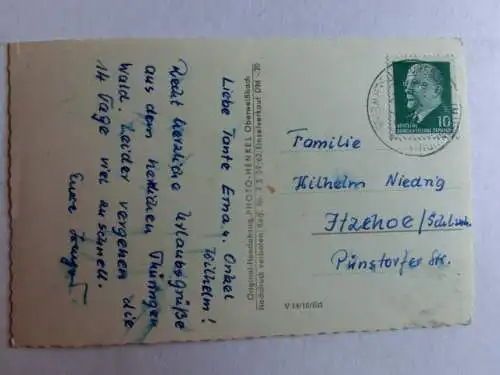 Liebe Tante Erna u. Onkel
Wilhelm!
Recht herzliche Urlaubsgrüße
aus dem herrlichen Thüringer
Wald. Leider vergehen die
14 Tage viel zu schnell.
Eure
Original-Handabzug PHOTO-HENKEL Oberweißbach
Nachdruck verboten: Reg. Nr. Einzelverkauf DM -,20
10
Familie
Wilhelm Niedrig
Itzehoe/Holst.
Pünstorfer Str.